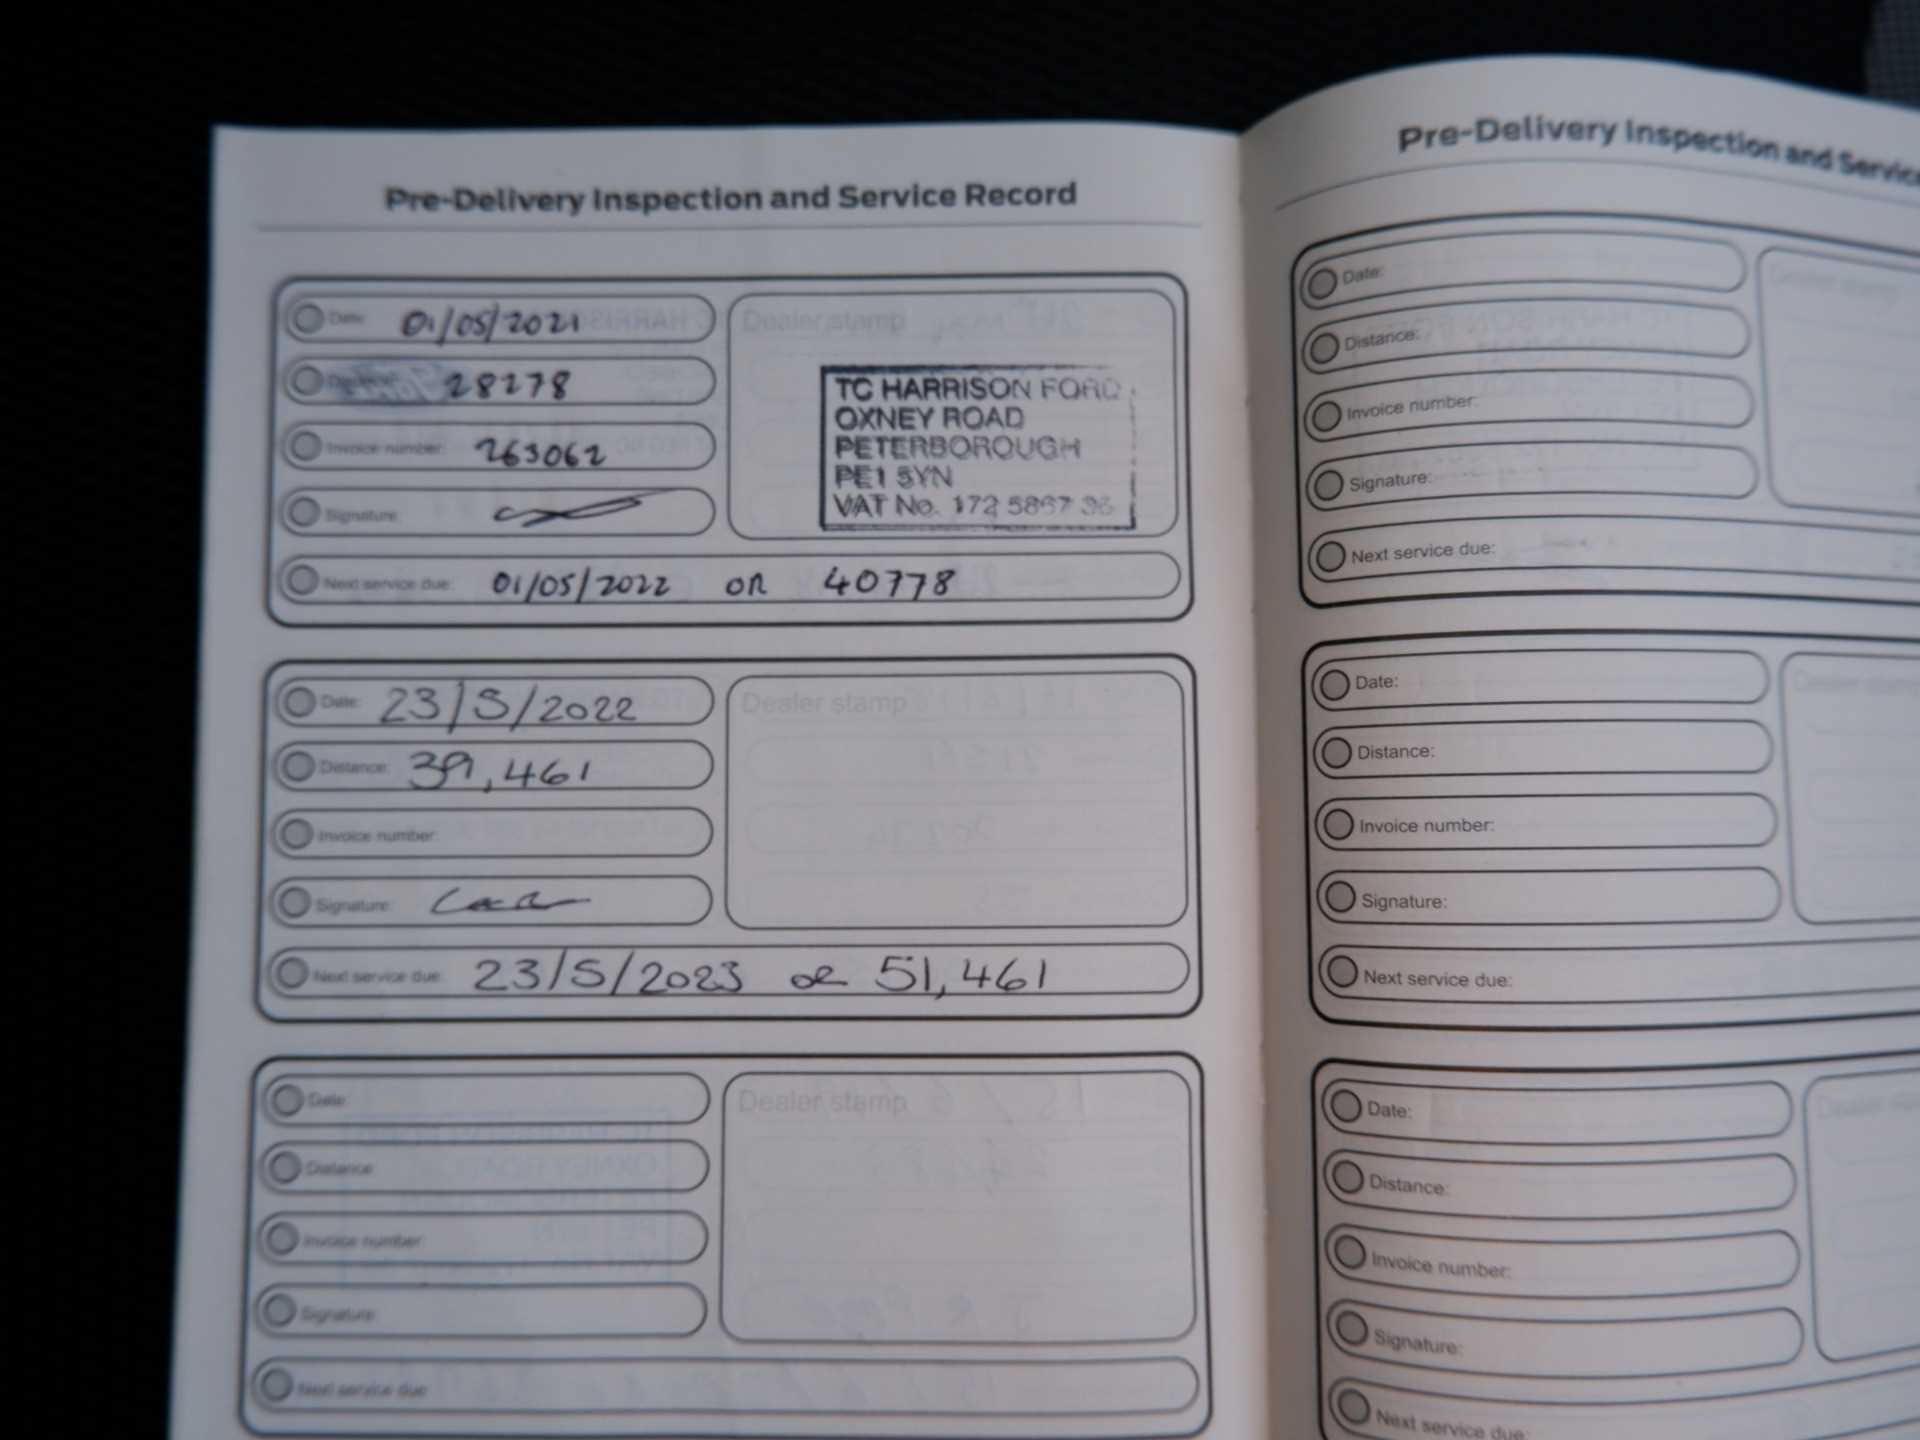 Pre-Delivery Inspection and Service Record
Date: 01/05/2021
28278
Invoice number: 263062
Signature:
Next service due: 01/05/2022 OR 40778
Dealer stamp
TC HARRISON FORD
OXNEY ROAD
PETERBOROUGH
PE1 5YN
VAT No. 172 5867
Date: 23/5/2022
Distance: 39,461
Invoice number:
Signature:
Next service due: 23/5/2023 OR 51,461
Dealer stamp
Date:
Distance:
Invoice number:
Signature:
Next service due:
Dealer stamp
Pre-Delivery Inspection and Service
Date:
Distance:
Invoice number:
Signature:
Next service due:
Dealer stamp
Date:
Distance:
Invoice number:
Signature:
Next service due:
Dealer stamp
Date:
Distance:
Invoice number:
Signature:
Next service due:
Dealer